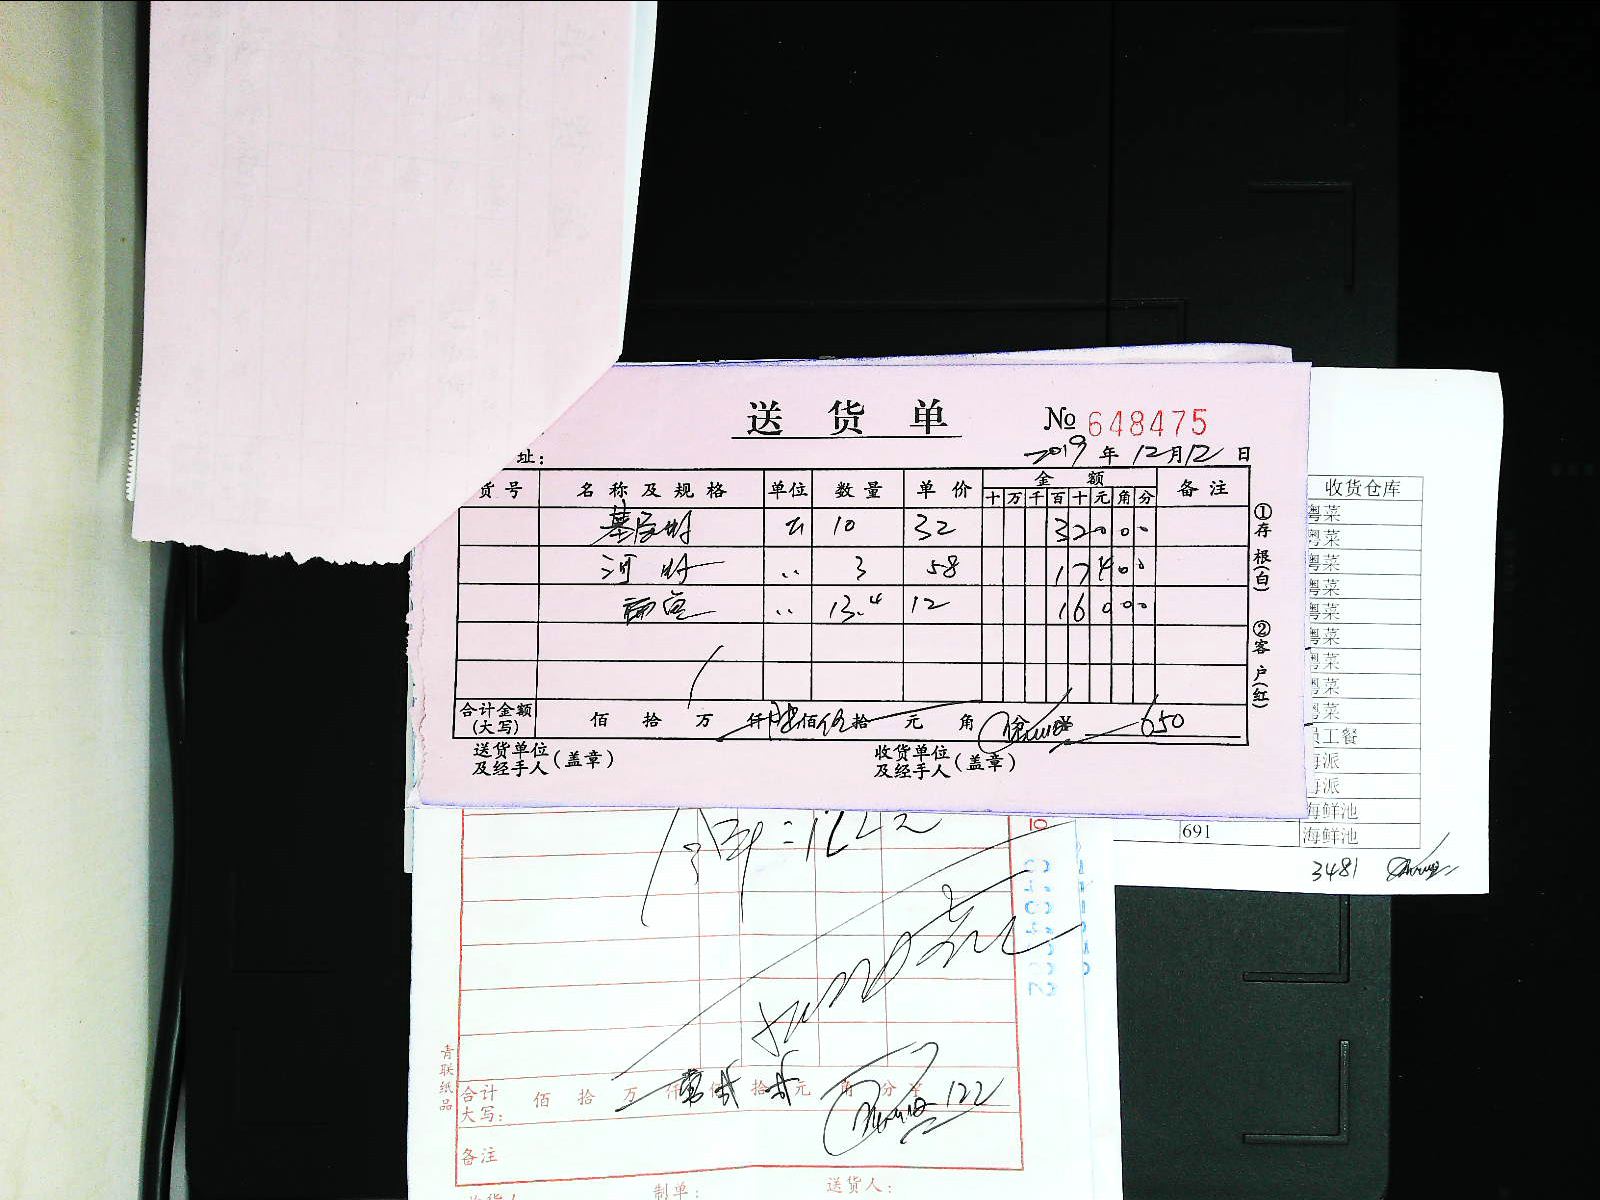 送货单 № 648475
址: 2019年12月12日
货号 名称及规格 单位 数量 单价 金额 备注
十 万 千 百 十 元 角 分
10 32 32000
河虾 ‥ 3 58 17400
‥ 13.4 12 16000
合计金额(大写) 佰 拾 万 仟 陆佰伍拾 元 角 分 650
送货单位及经手人(盖章) 收货单位及经手人(盖章)
①存根(白) ②客户(红)
收货仓库
粤菜
粤菜
粤菜
粤菜
粤菜
粤菜
粤菜
粤菜
粤菜
员工餐
海派
海派
海鲜池
691 海鲜池
3481
青联纸品
合计大写: 佰 拾 万 仟 佰 拾 元 角 分 ¥ 122
备注
制单: 送货人: